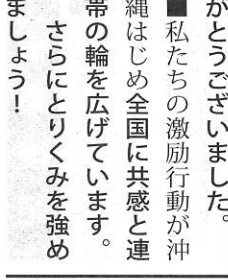 がとうございました。
■私たちの激励行動が沖
縄はじめ全国に共感と連
帯の輪を広げています。
さらにとりくみを強め
ましょう！